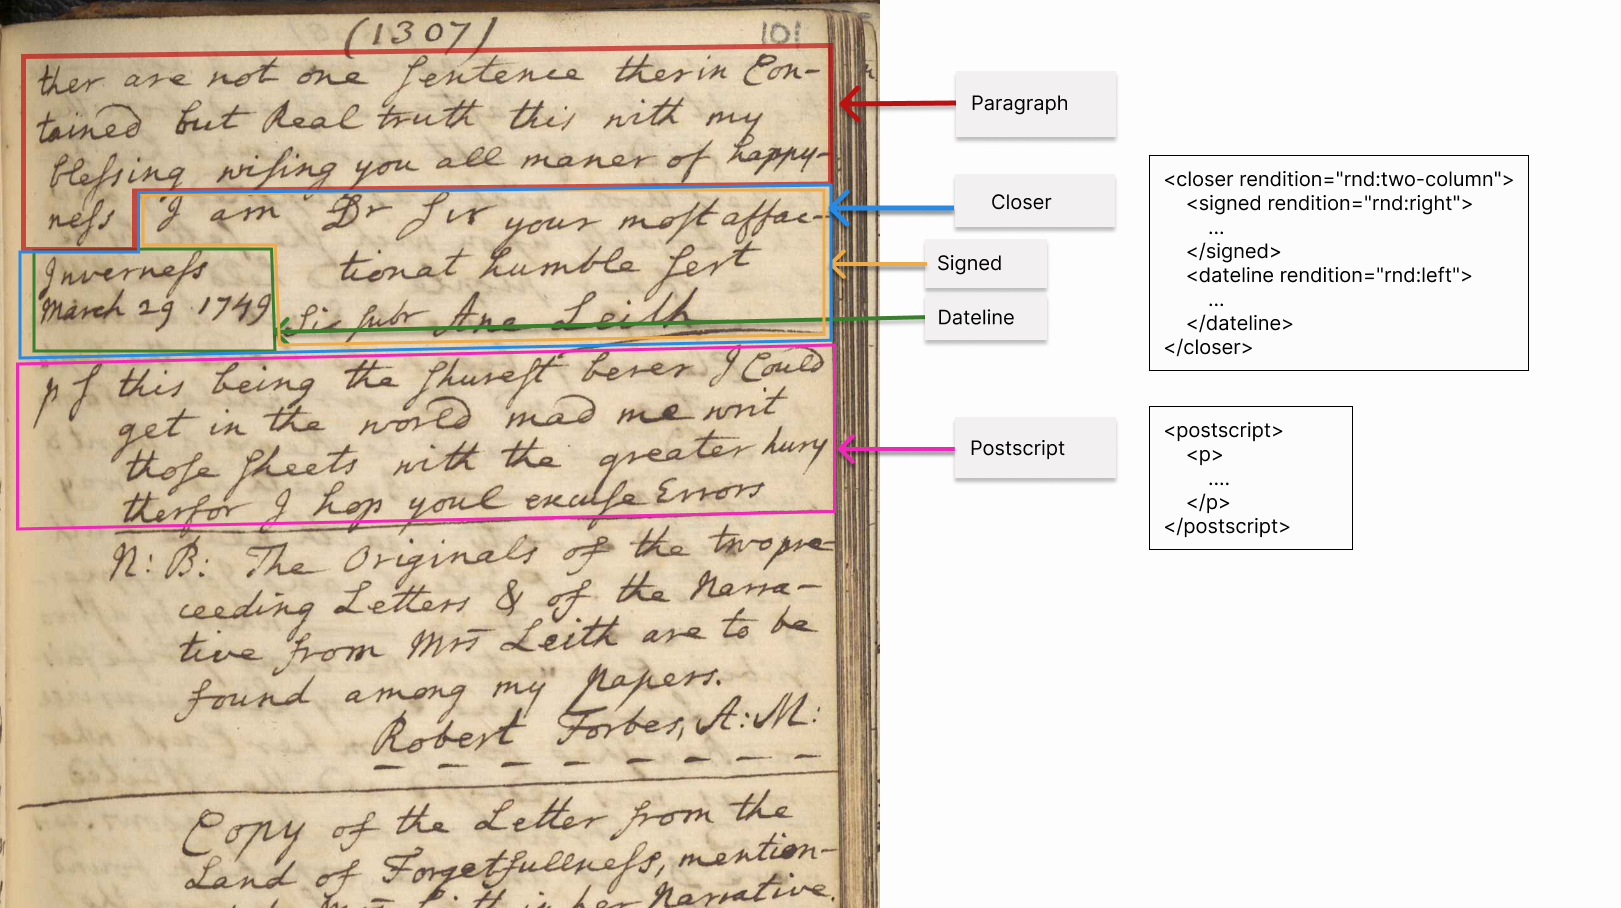 (1307)
101
ther are not one Sentence therin Con-
tained but Real truth this with my
blessing wising you all maner of happy-
ness I am Dr Sir your most affac-
Inverness tionat humble Sert
March 29 1749 Sic subr Ane Leith
p S this being the Shurest berer I Could
get in the world mad me writ
those Sheets with the greater hury
therfor I hop youl excuse Errors
N: B: The Originals of the two pre-
ceeding Letters & of the Narra-
tive from Mrs Leith are to be
found among my Papers.
Robert Forbes, A:M:
Copy of the Letter from the
Land of Forgetfullness, mention-
Leith in her Narrative.
Paragraph
Closer
Signed
Dateline
Postscript
<closer rendition="rnd:two-column">
<signed rendition="rnd:right">
...
</signed>
<dateline rendition="rnd:left">
...
</dateline>
</closer>
<postscript>
<p>
....
</p>
</postscript>